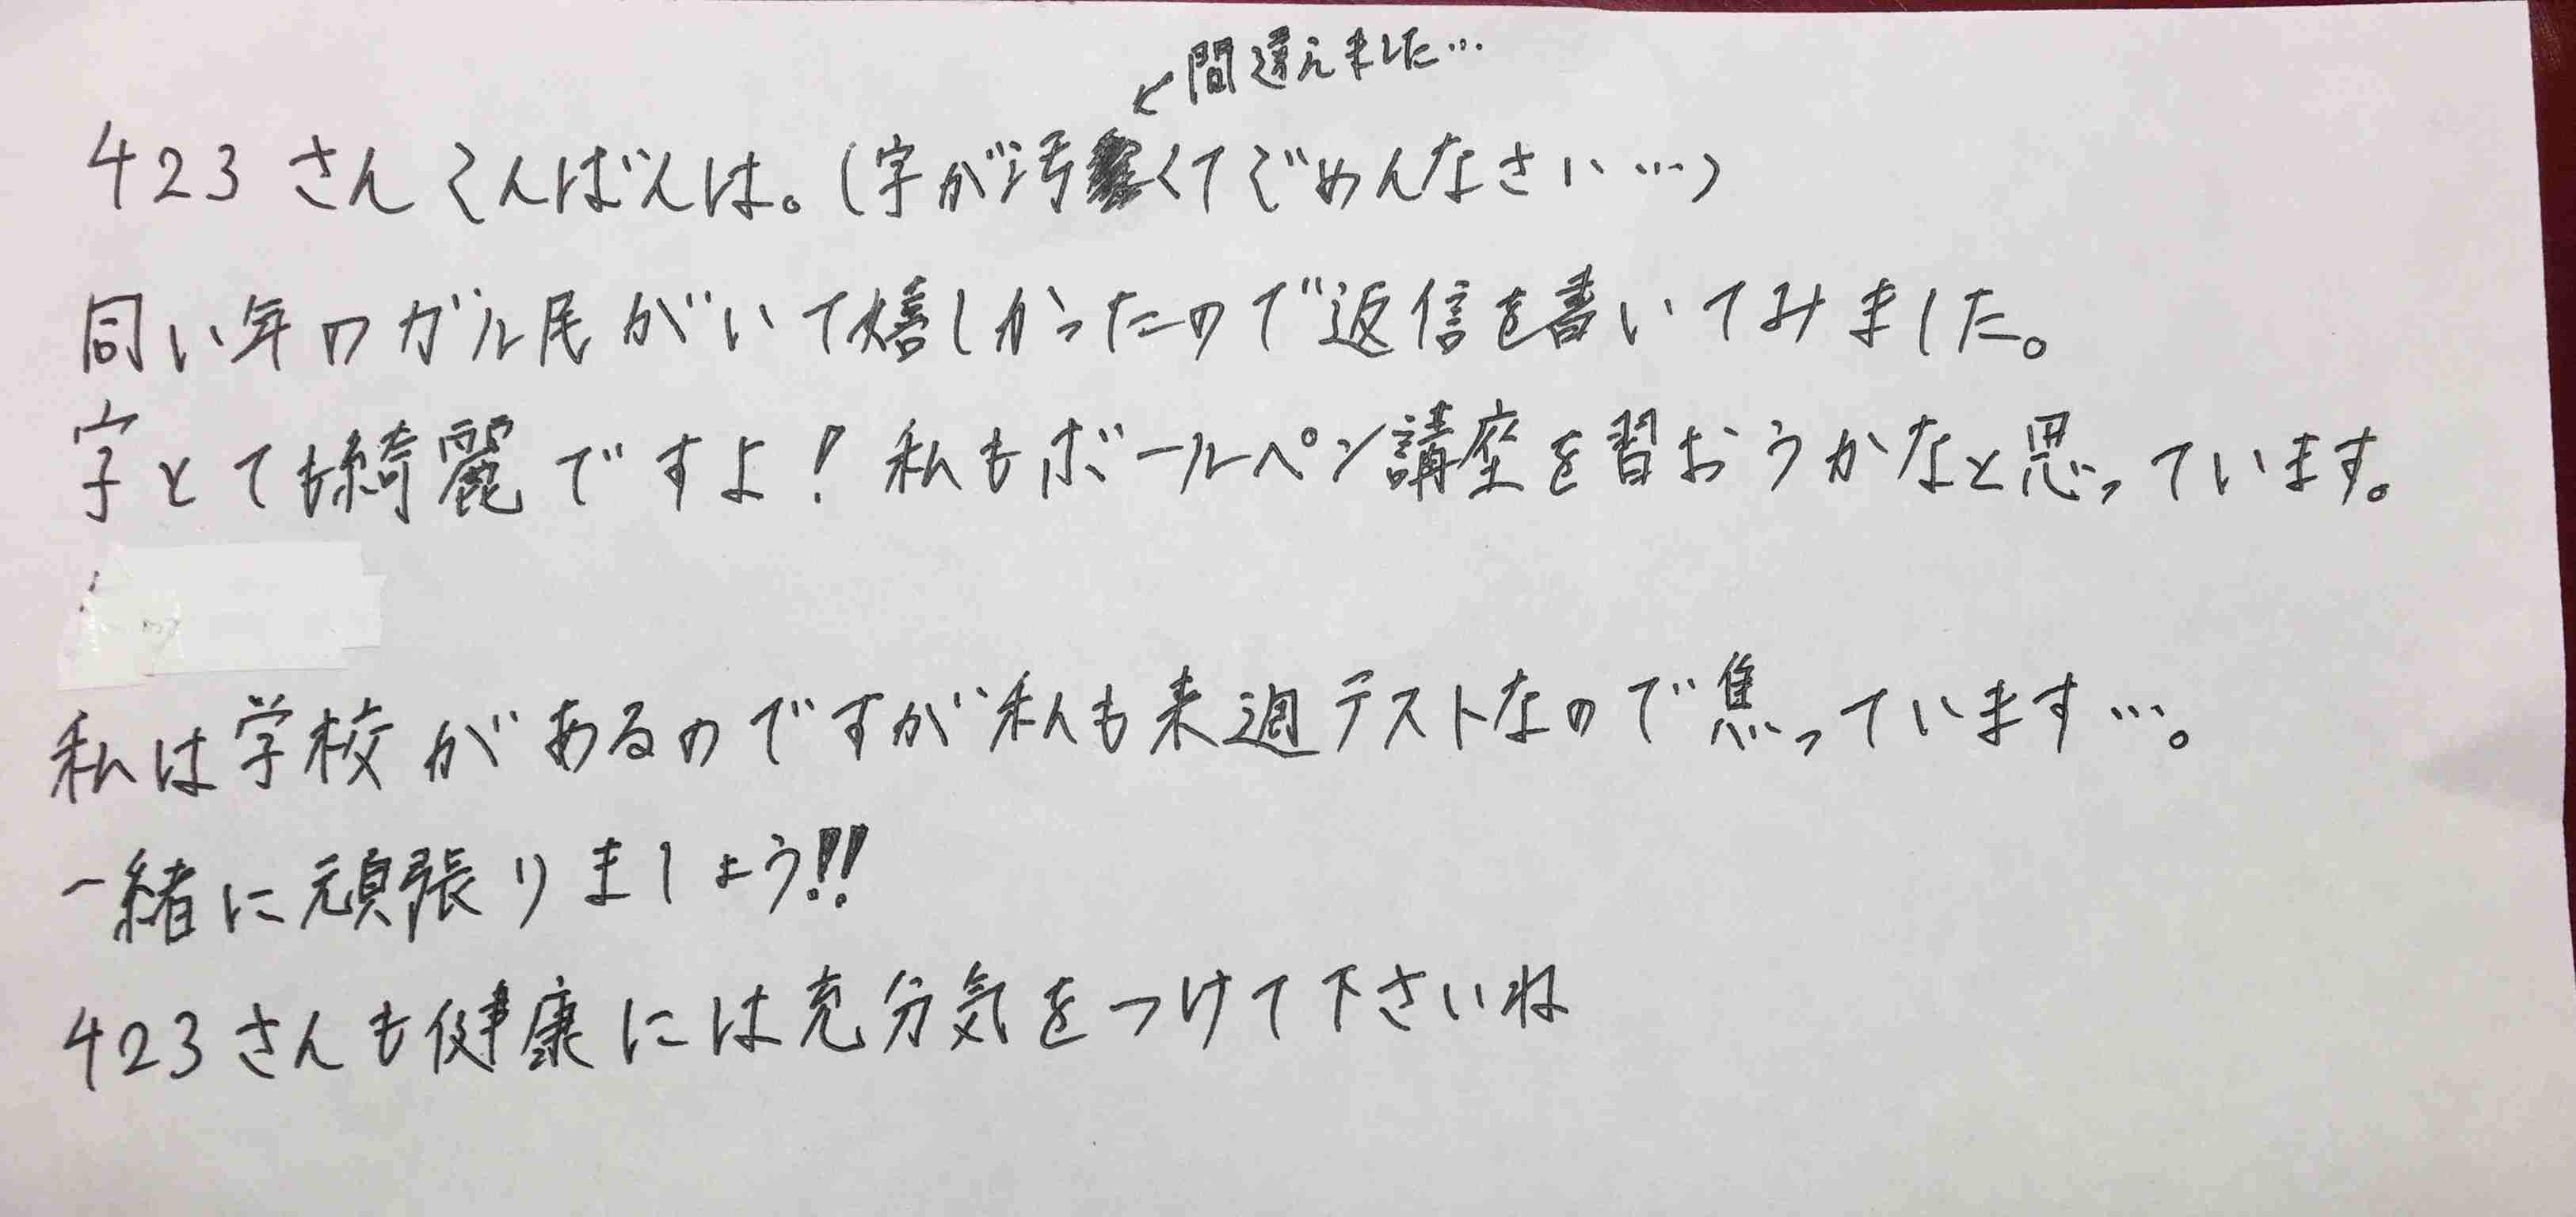 ←間違えました…
423さんこんばんは。(字が汚くてごめんなさい…)
同い年のガル民がいて嬉しかったので返信を書いてみました。
字とても綺麗ですよ!私もボールペン講座を習おうかなと思っています。
私は学校があるのですが私も来週テストなので焦っています…。
一緒に頑張りましょう!!
423さんも健康には充分気をつけて下さいね